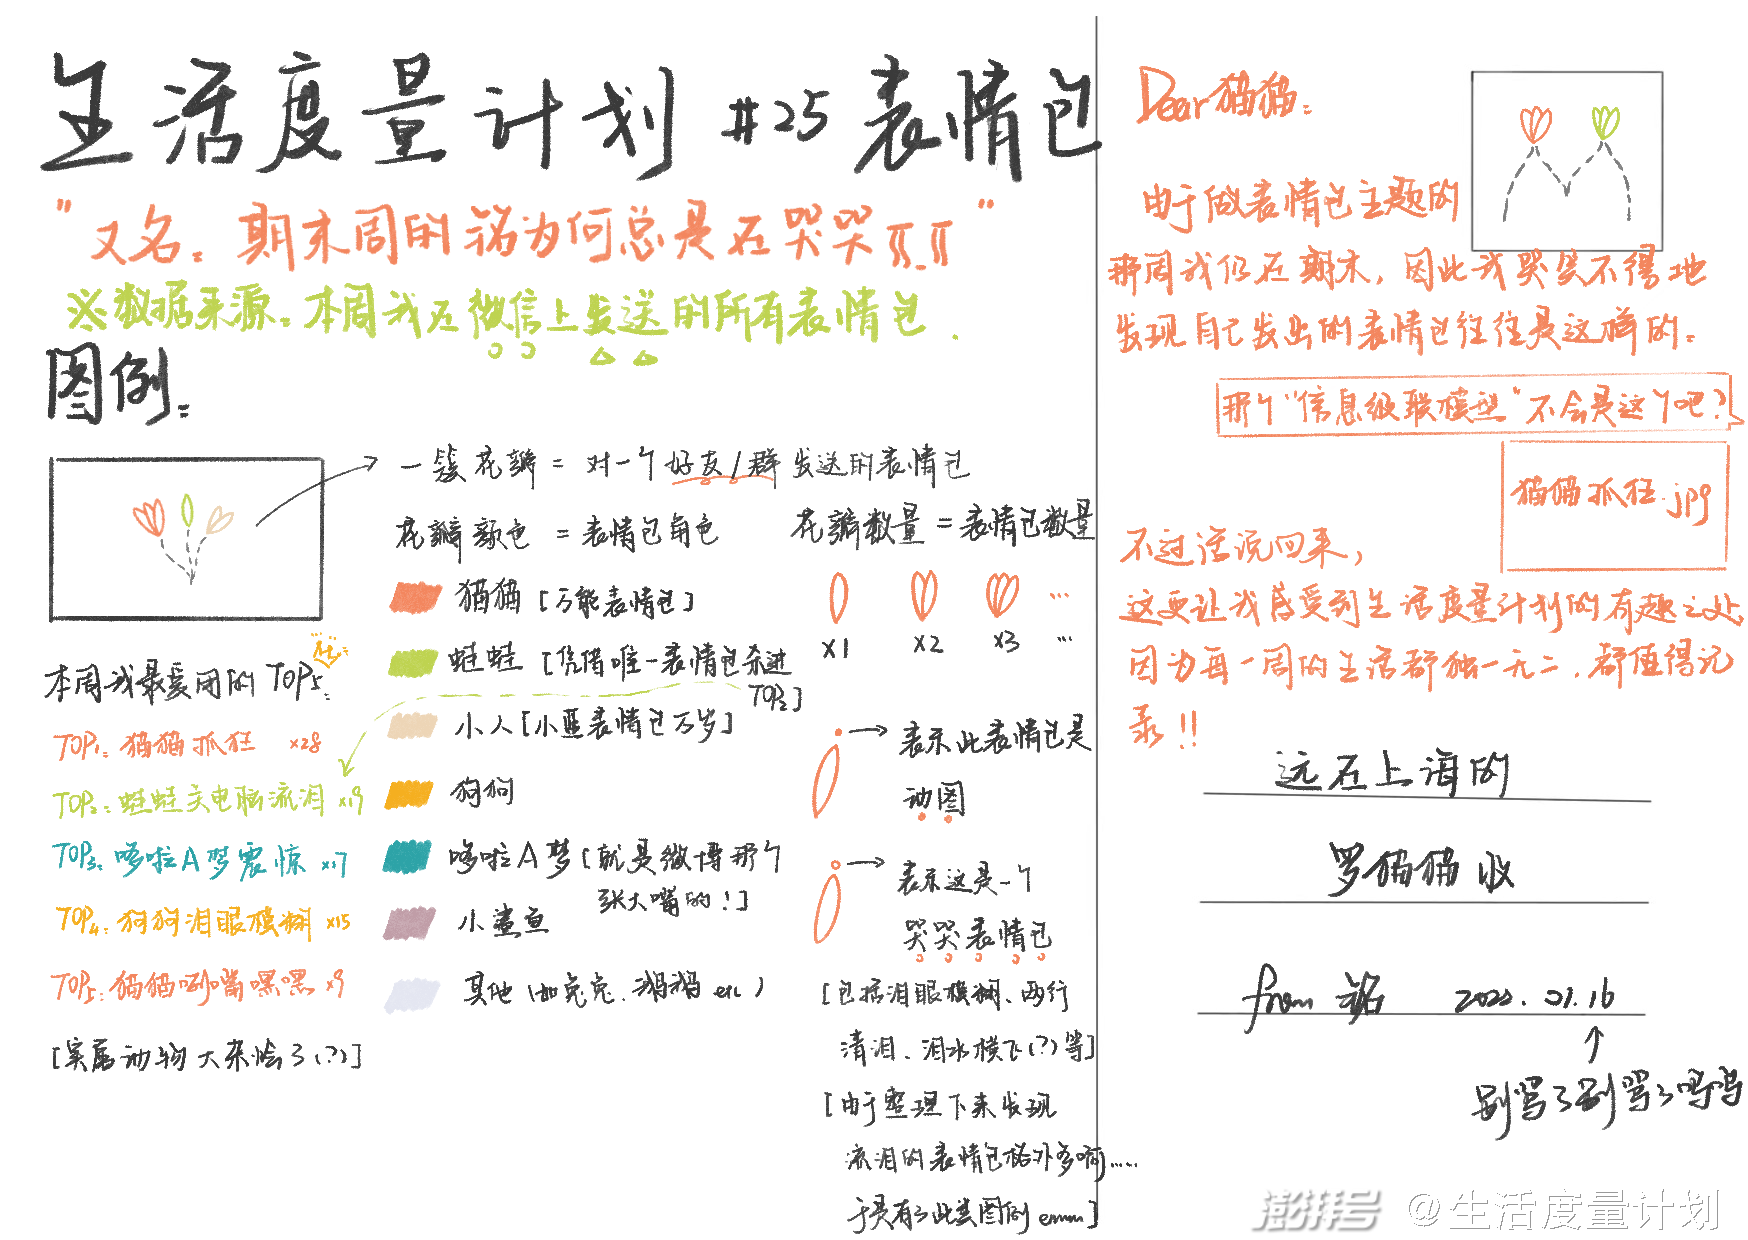 生活度量计划 #25 表情包
"又名：期末周的铭为何总是在哭哭
※数据来源：本周我在微信上发送的所有表情包.
图例：
一簇花瓣 = 对一个好友/群发送的表情包
花瓣颜色 = 表情包角色
猫猫 [万能表情包]
蛙蛙 [凭借唯一表情包杀进TOP2]
小人 [小蓝表情包万岁]
狗狗
哆啦A梦 [就是微博那个
张大嘴的!]
小鲨鱼
其他 (如兔兔、鹅鹅 etc)
花瓣数量 = 表情包数量
x1 x2 x3 ...
...
表示此表情包是
动图
表示这是一个
哭哭表情包
[包括泪眼模糊、两行
清泪、泪水横飞(?)等]
[由于整理下来发现
流泪的表情包格外多啊......
于是有了此类图例 emm]
本周我最爱用的TOP5:
TOP1: 猫猫抓狂 x28
TOP2: 蛙蛙关电脑流泪 x19
TOP3: 哆啦A梦震惊 x17
TOP4: 狗狗泪眼模糊 x15
TOP5: 猫猫咧嘴嘿嘿 x9
[实属动物大杂烩了(?)]
Dear猫猫：
由于做表情包主题的
那周我们在期末，因此我哭笑不得地
发现自己发出的表情包往往是这样的：
那个"信息级联模型"不会是这个吧?
猫猫抓狂.jpg
不过话说回来，
这更让我感受到生活度量计划的有趣之处，
因为每一周的生活都独一无二，都值得记
录!!
远在上海的
罗猫猫收
from 铭 2022.01.16
别骂了别骂了呜呜
澎湃号 @生活度量计划